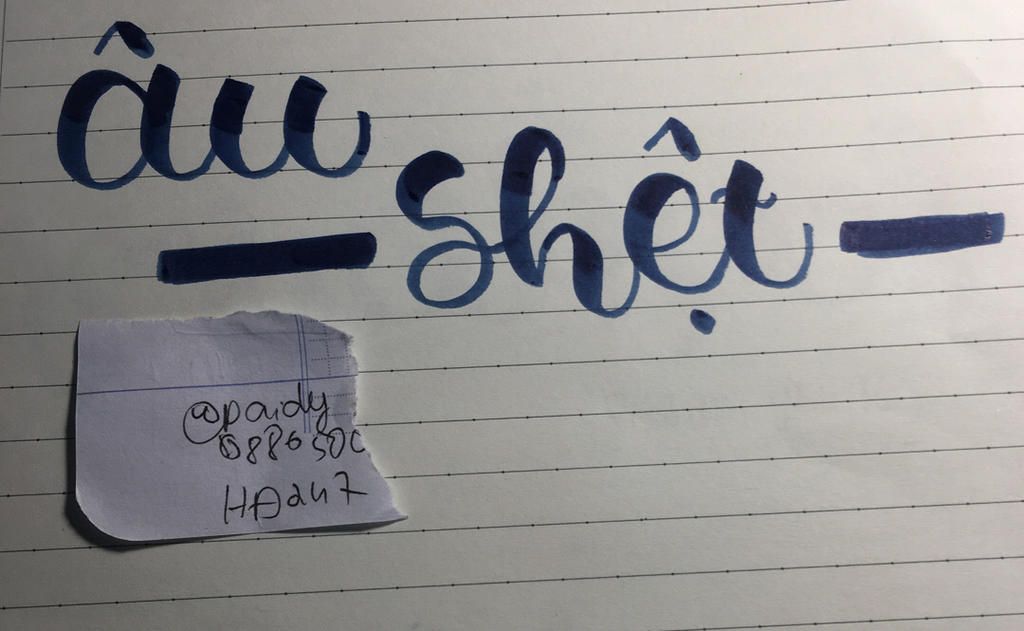 âu
shệt
@paidy
0886 50C
HĐ247